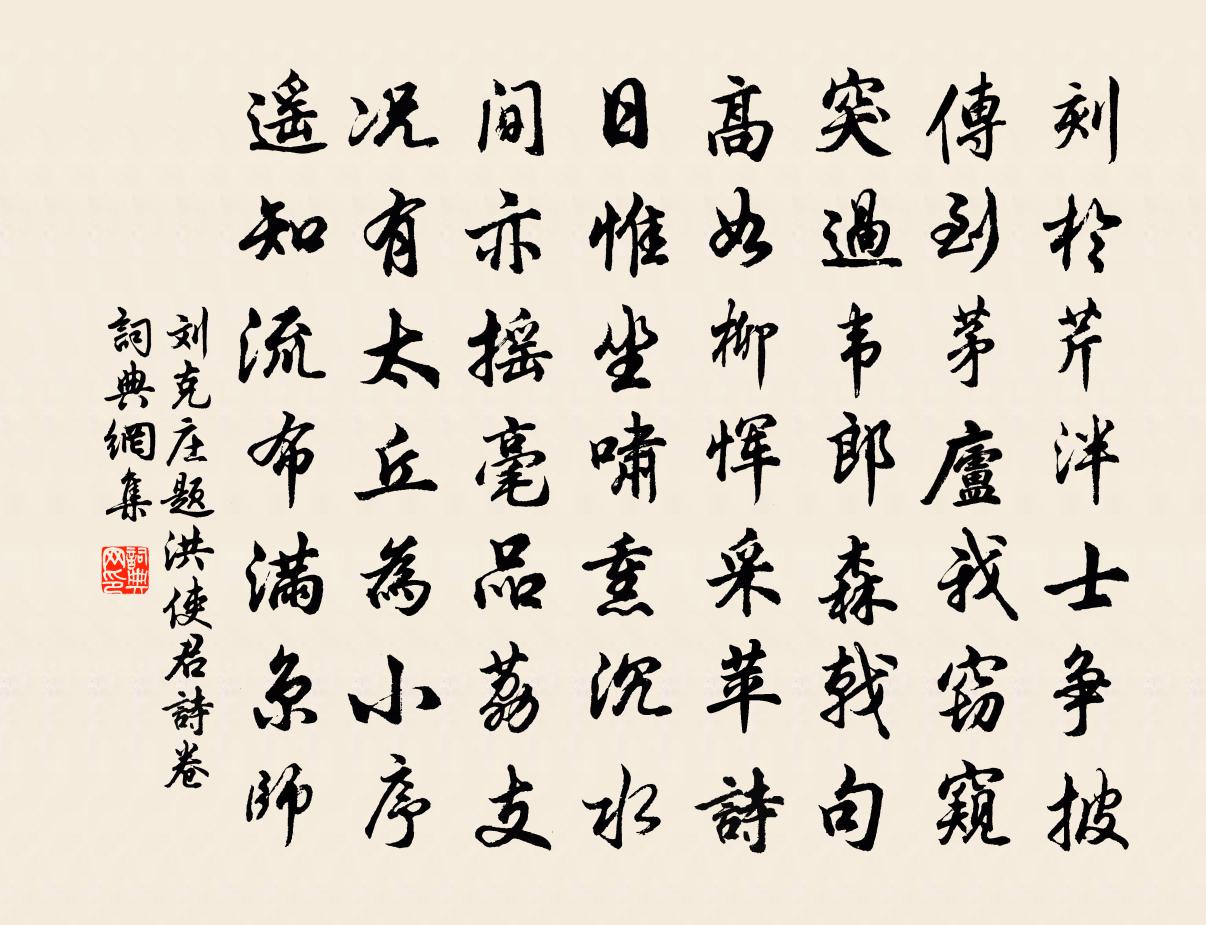 刻於芹泮士争披
傳到茅廬我窃窺
突過韦郎森戟句
高如柳惲采苹詩
日惟坐嘯熏沉水
间亦摇毫品荔支
况有太丘為小序
遥知流布满京師
刘克庄题洪使君詩卷
詞典網集
詞典网印